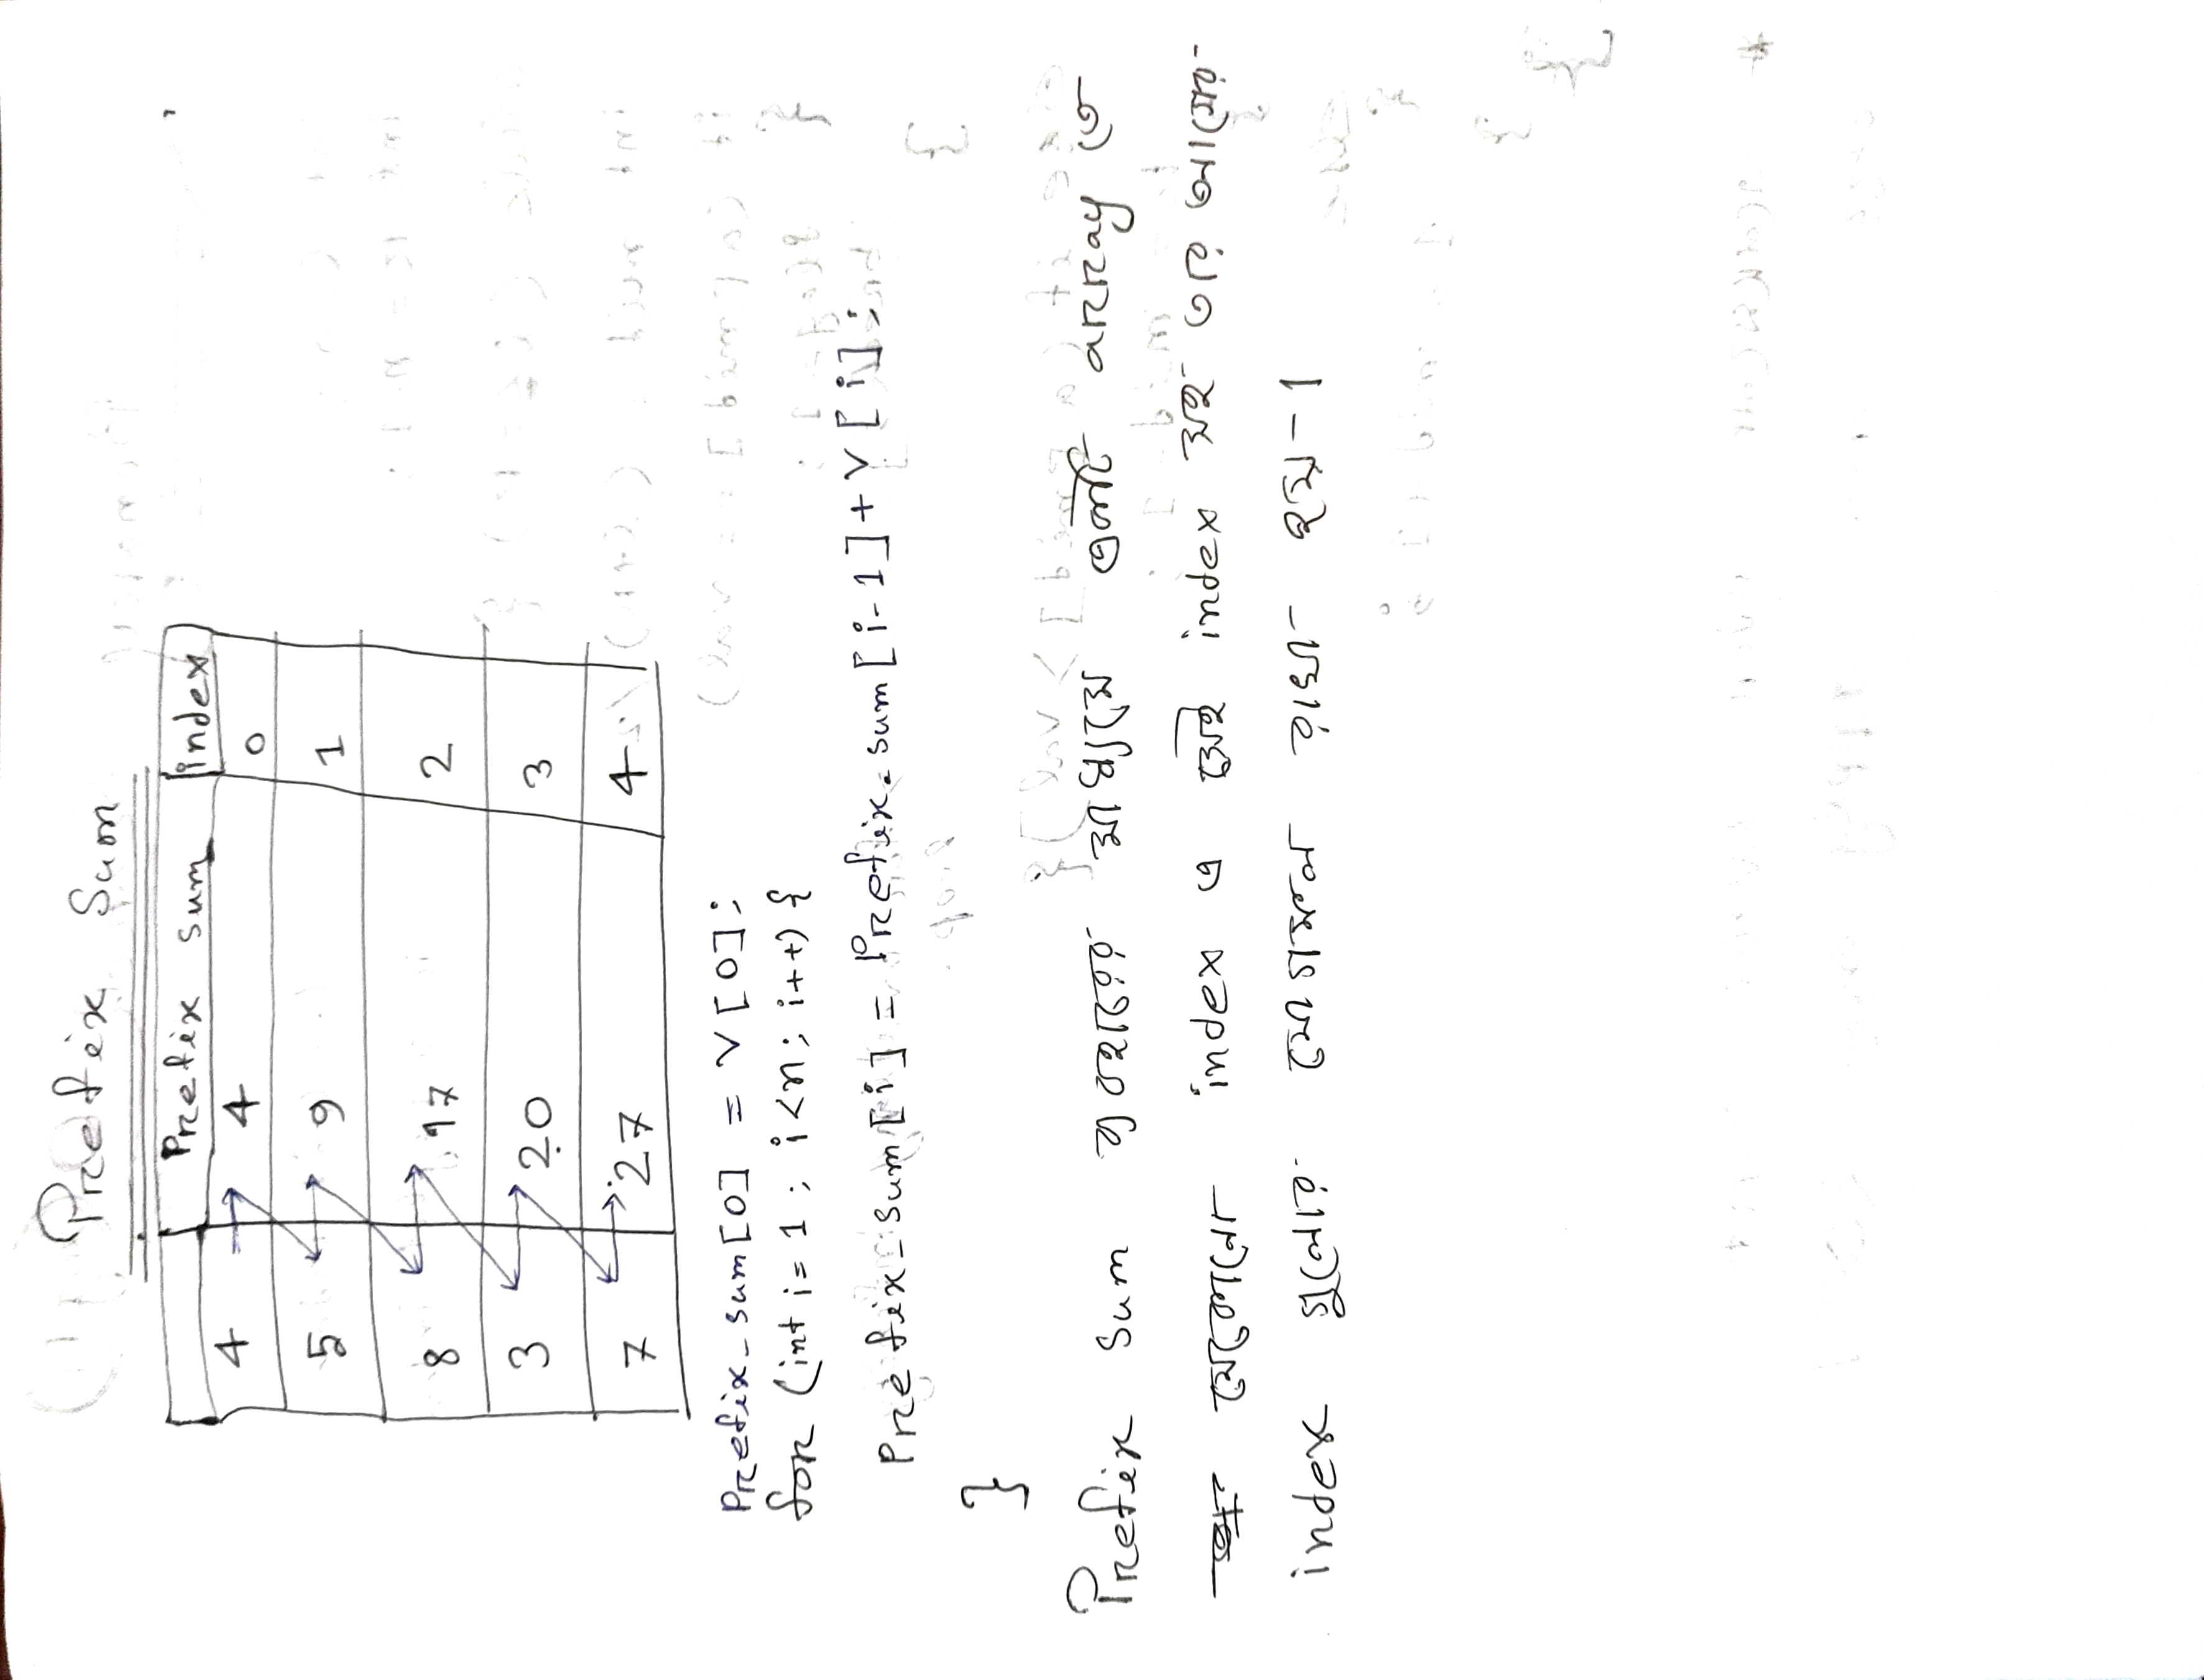 Prefix Sum
Prefix sum index
4 4 0
5 9 1
8 17 2
3 20 3
7 27 4
Prefix_sum[0] = v[0];
for (int i = 1; i<n; i++) {
Prefix_sum[i] = Prefix_sum[i-1]+v[i];
}
Prefix sum ব্যবহারের মাধ্যমে একটি array তে
যেকোনো index এ সেই index সহ তার আগের
index গুলোর যোগফল রাখা হয়।